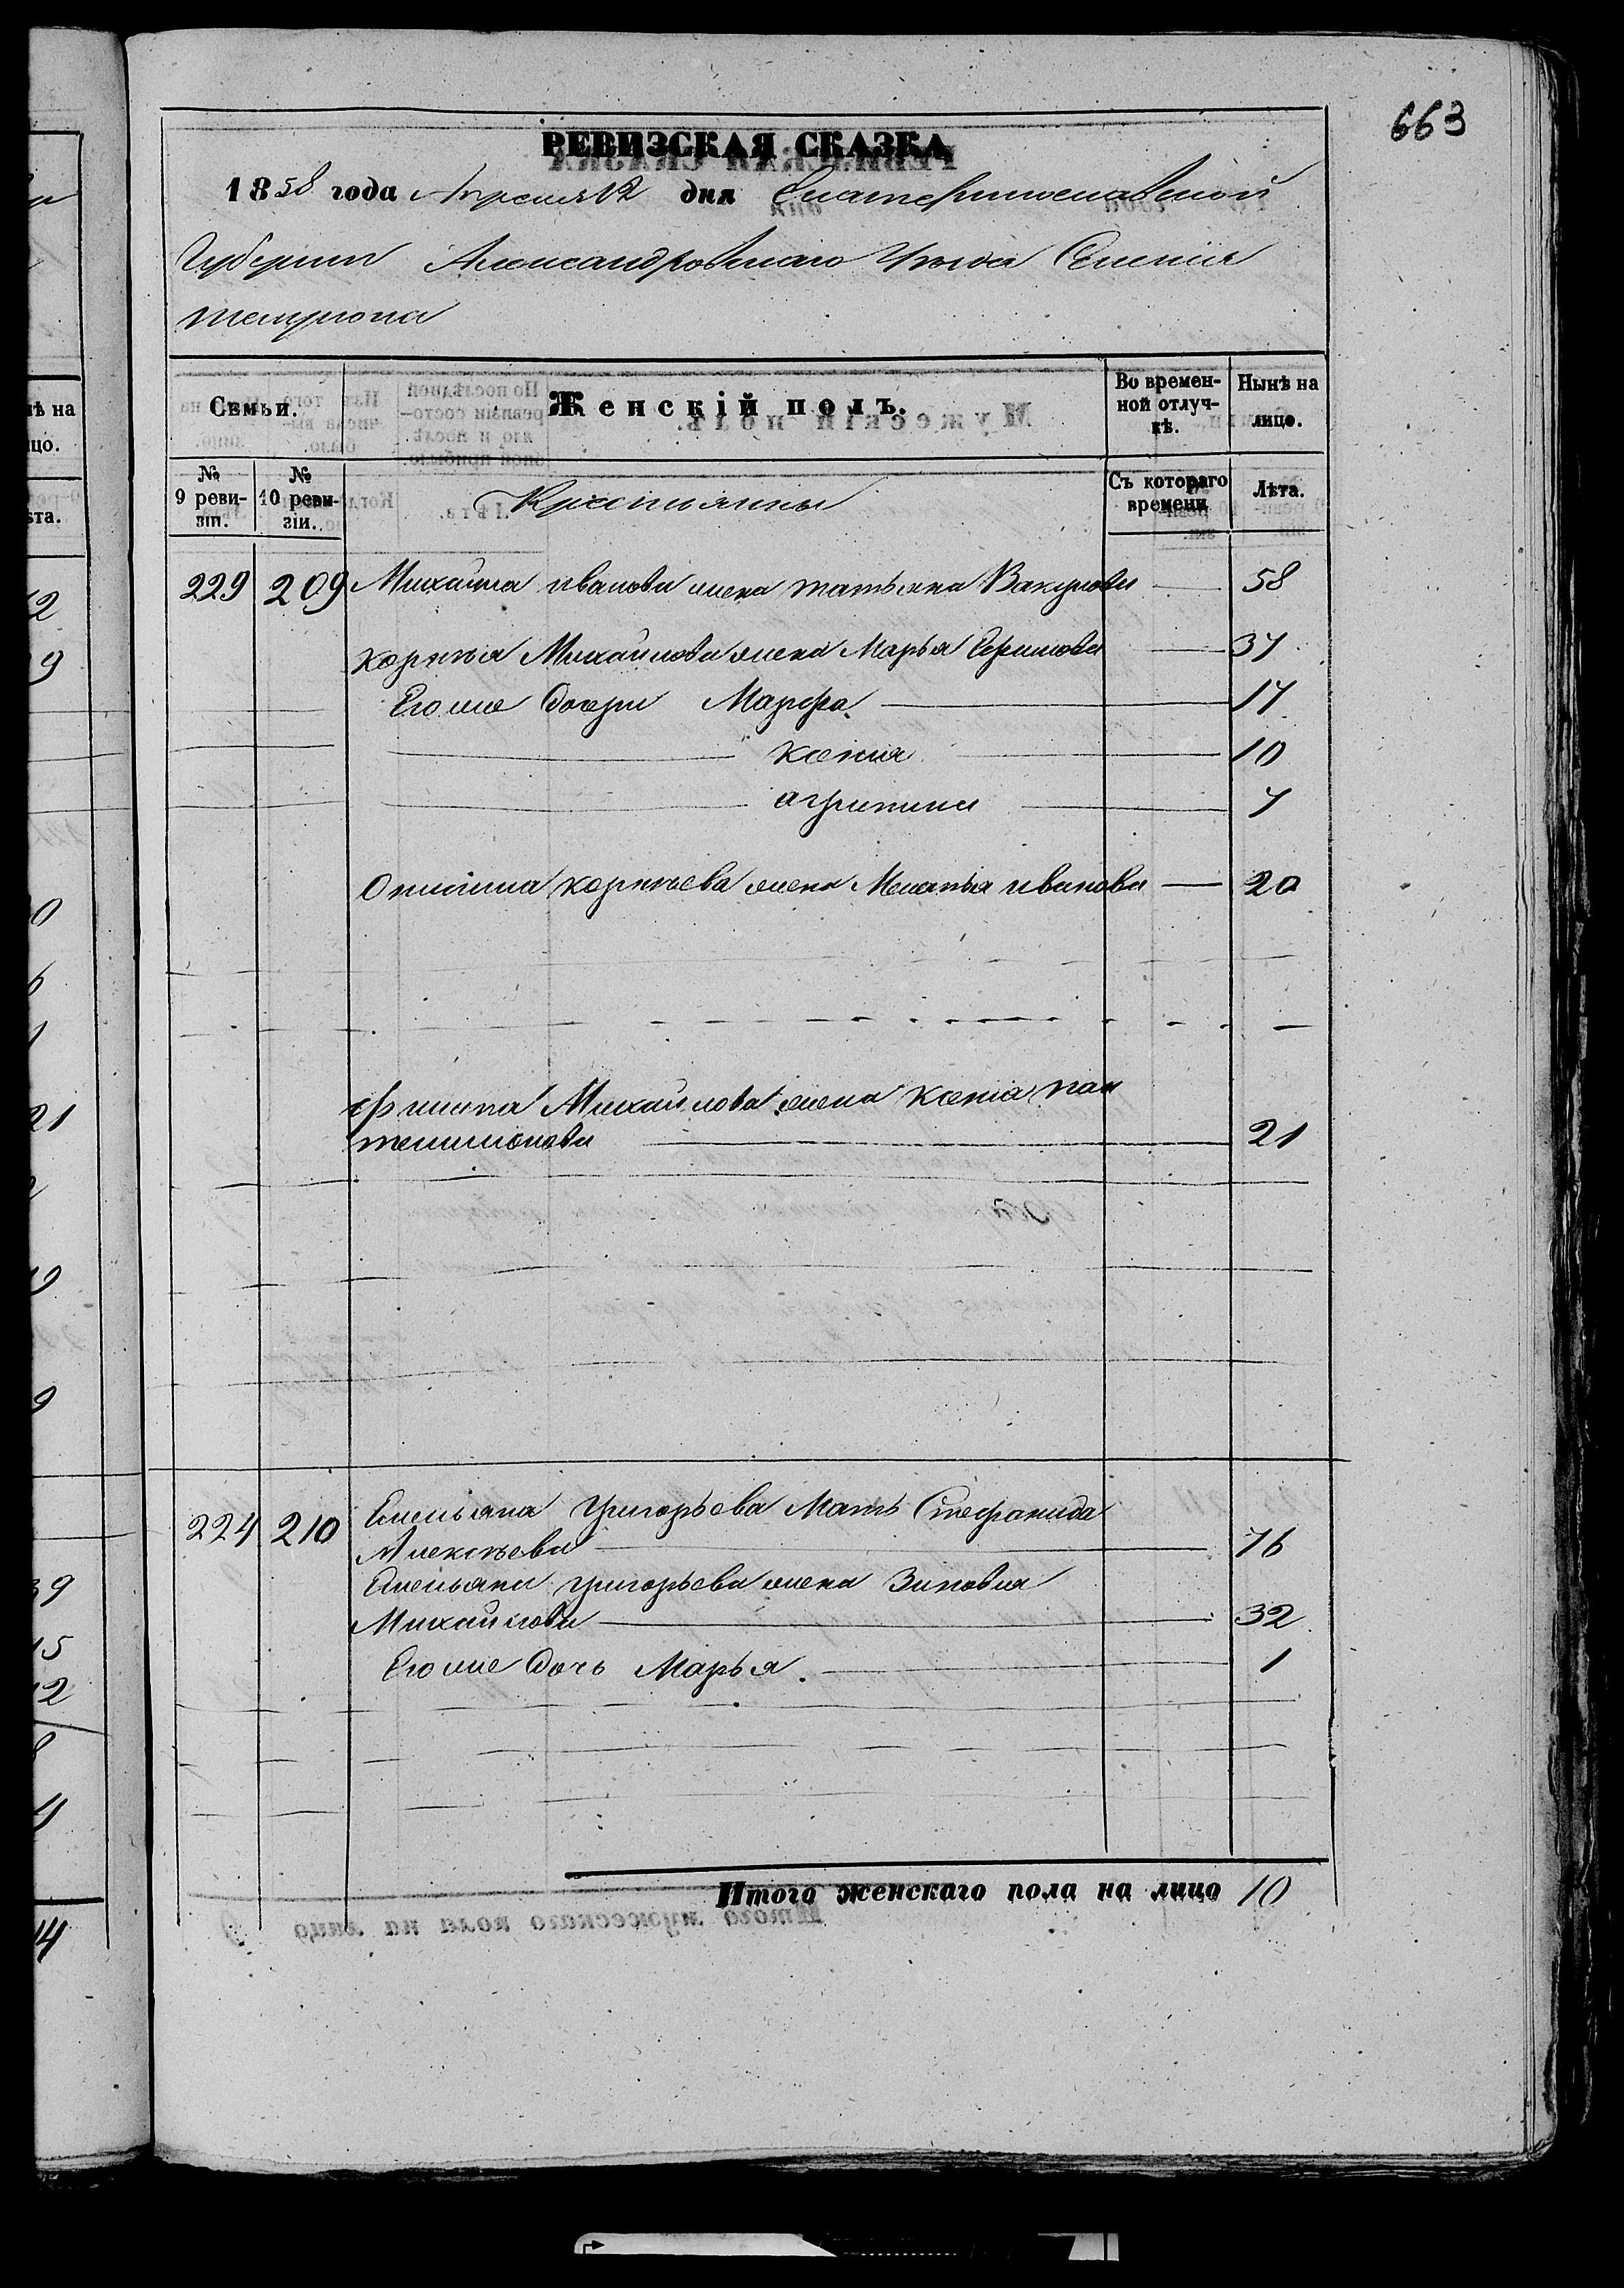 663
РЕВИЗСКАЯ СКАЗКА
1858 года Апреля 12 дня Екатеринославской
Губернии Александровскаго Уѣзда Селенія
темрюка
Семьи. Женскій полъ. Во времен- Нынѣ на
ной отлуч- лицо.
кѣ.
№ № Съ котораго Лѣта.
9 реви- 10 реви- времени
зіи. зіи.
Крестьянины
229 209 Михайла иванова жена татьяна Вакулова 58
корнѣя Михайлова жена Марья Ефимова 37
Его же дочери Марфа 17
ксенія 10
агрипина 7
корнѣева жена Меланья иванова 20
филипа Михайлова жена ксенія пан
телимонова 21
224 210 Емельяна григорьева Мать Стефанида
Алексѣева 76
Емельяна григорьева жена Зиновия
Михайлова 32
Его же дочь Марья 1
Итого женскаго пола на лицо 10